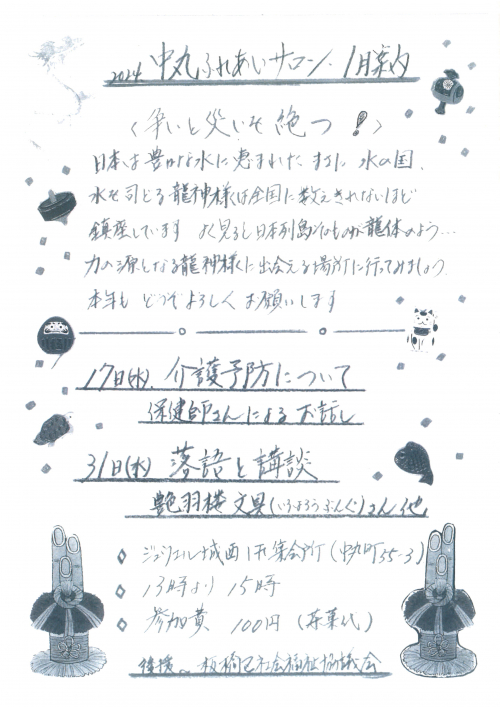 2024. 中丸ふれあいサロン. 1月案内
〈争いと災いを絶つ!〉
日本は豊かな水に恵まれた まさに 水の国.
水を司どる龍神様は全国に数えきれないほど
鎮座しています よく見ると日本列島そのものが龍体のよう…
力の源となる龍神様に出会える場所に行ってみましょう.
本年も どうぞよろしく お願いします
17日(水). 介護予防について
保健師さんによる お話し
31日(水) 落語と講談
艶羽楼 文具(いろはろうぶんぐ)さん他
ジェシエル城西1F集会所(中丸町35-3)
13時より 15時
参加費 100円 (茶菓代)
後援~板橋区社会福祉協議会